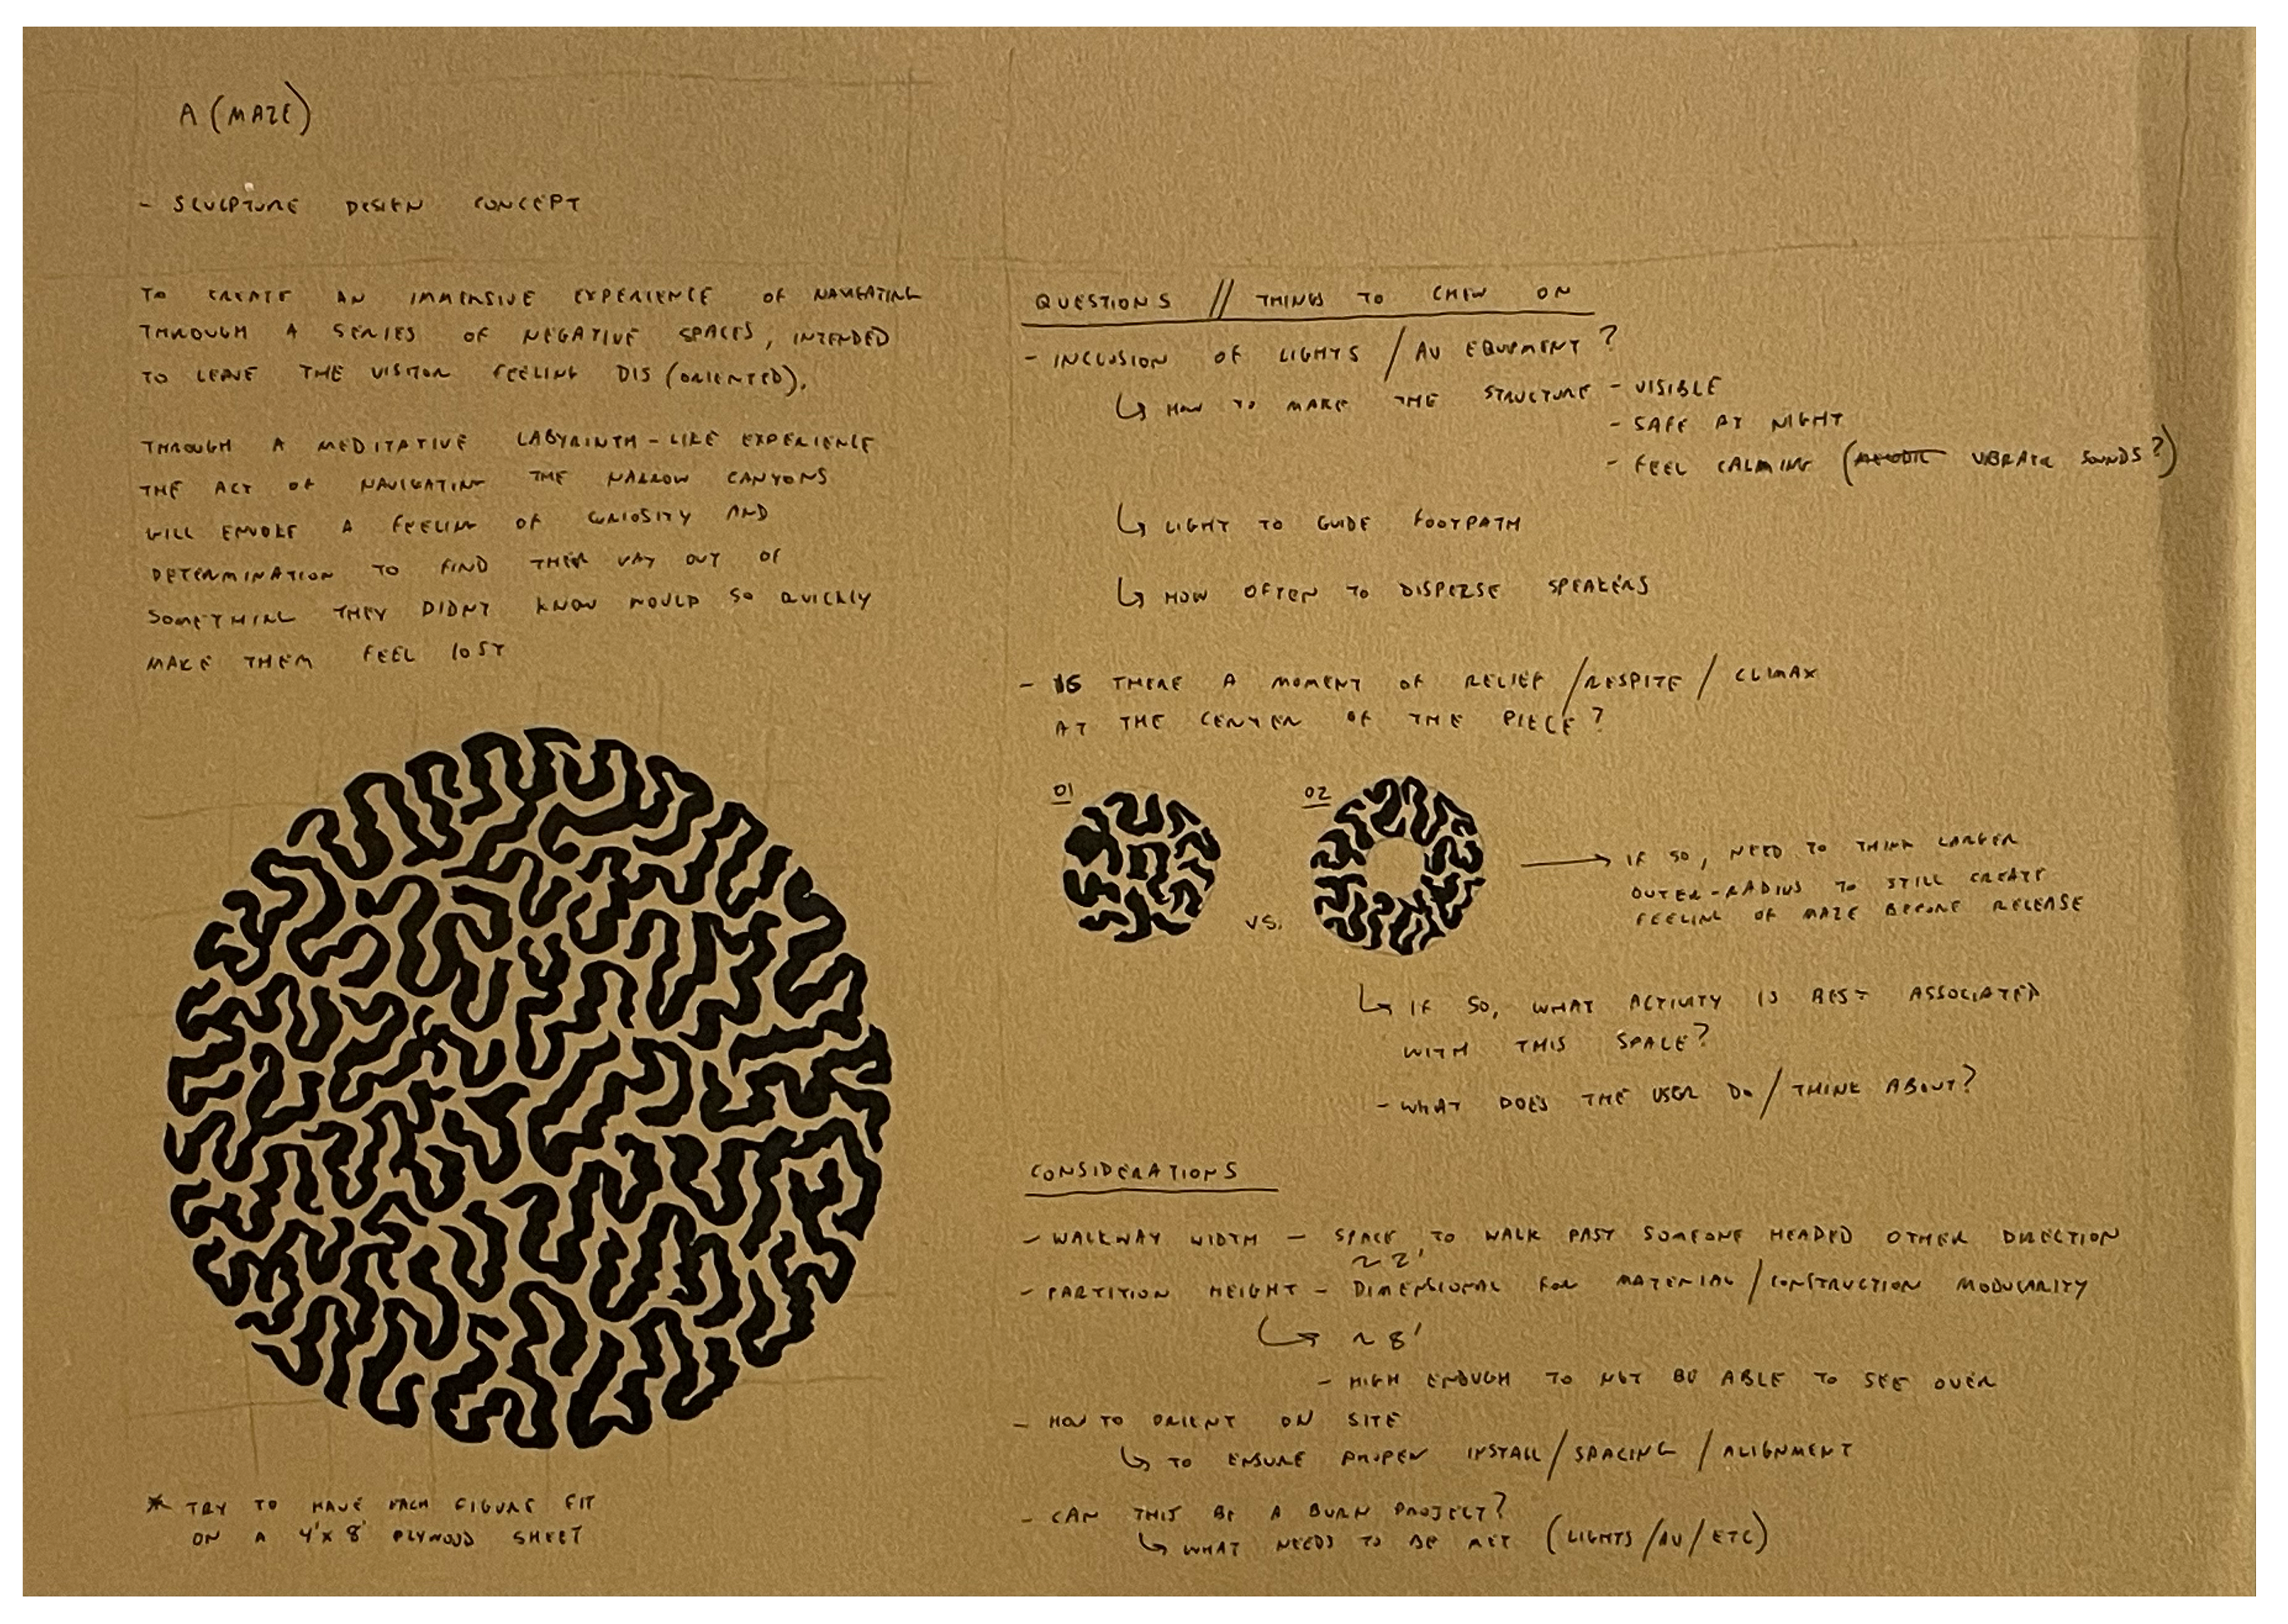 A (MAZE)
- SCULPTURE DESIGN CONCEPT
TO CREATE AN IMMERSIVE EXPERIENCE OF NAVIGATING
THROUGH A SERIES OF NEGATIVE SPACES, INTENDED
TO LEAVE THE VISITOR FEELING DIS (ORIENTED).
THROUGH A MEDITATIVE LABYRINTH-LIKE EXPERIENCE
THE ACT OF NAVIGATING THE NARROW CANYONS
WILL ENVOKE A FEELING OF CURIOSITY AND
DETERMINATION TO FIND THEIR WAY OUT OF
SOMETHING THEY DIDNT KNOW WOULD SO QUICKLY
MAKE THEM FEEL LOST
* TRY TO HAVE EACH FIGURE FIT
ON A 4'X8' PLYWOOD SHEET
QUESTIONS // THINGS TO CHEW ON
- INCLUSION OF LIGHTS / AV EQUIPMENT?
↳ HOW TO MAKE THE STRUCTURE - VISIBLE
- SAFE AT NIGHT
- FEEL CALMING ( SOUNDS?)
↳ LIGHT TO GUIDE FOOTPATH
↳ HOW OFTEN TO DISPERSE SPEAKERS
- IS THERE A MOMENT OF RELIEF / RESPITE / CLIMAX
AT THE CENTER OF THE PIECE?
01 VS. 02
→ IF SO, NEED TO THINK LARGER
OUTER-RADIUS TO STILL CREATE
FEELING OF MAZE BEFORE RELEASE
↳ IF SO, WHAT ACTIVITY IS BEST ASSOCIATED
WITH THIS SPACE?
- WHAT DOES THE USER DO / THINK ABOUT?
CONSIDERATIONS
- WALKWAY WIDTH - SPACE TO WALK PAST SOMEONE HEADED OTHER DIRECTION
~ 2'
- PARTITION HEIGHT - DIMENSIONAL FOR MATERIAL / CONSTRUCTION MODULARITY
↳ ~ 8'
- HIGH ENOUGH TO NOT BE ABLE TO SEE OVER
- HOW TO ORIENT ON SITE
↳ TO ENSURE PROPER INSTALL / SPACING / ALIGNMENT
- CAN THIS BE A BURN PROJECT?
↳ WHAT NEEDS TO BE MET (LIGHTS / AV / ETC)